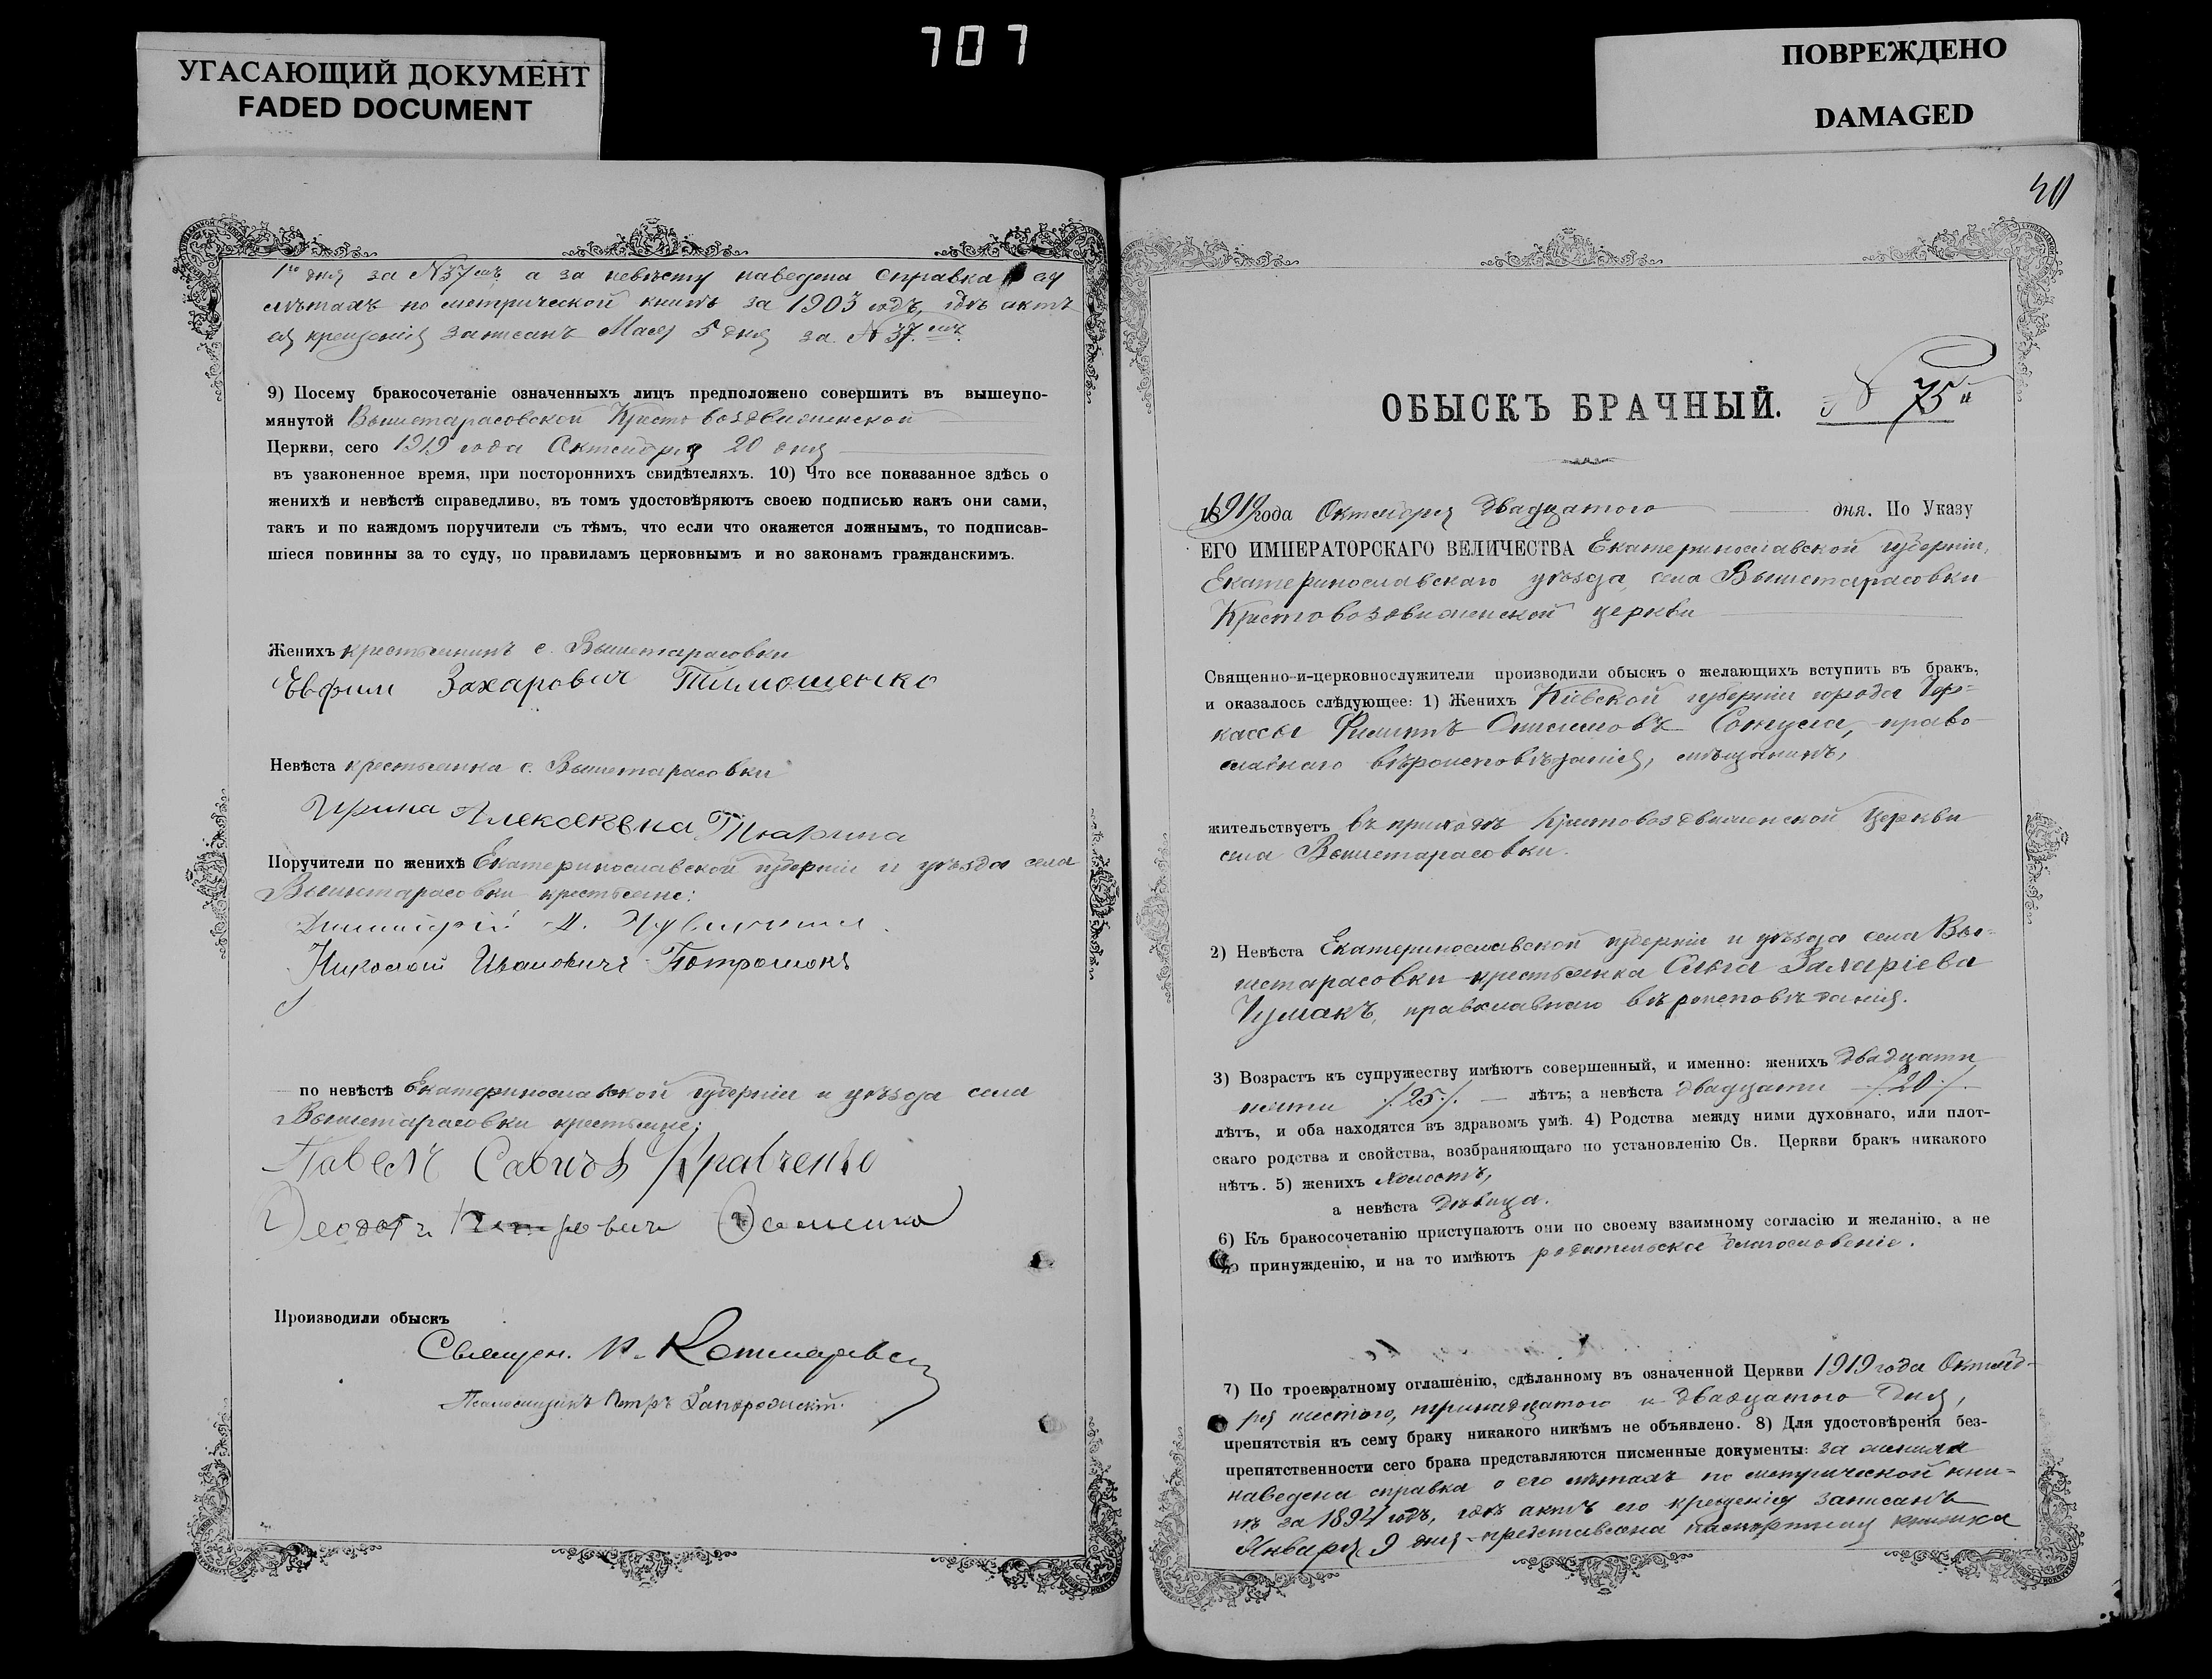 УГАСАЮЩИЙ ДОКУМЕНТ
FADED DOCUMENT
707
ПОВРЕЖДЕНО
DAMAGED
1го дня за №37мъ, а за невѣсту наведена справка о ея
лѣтахъ по метрической книгѣ за 1903 годъ, гдѣ актъ
ея крещенія записанъ Мая 5 дня за №37.мъ
9) Посему бракосочетаніе означенныхъ лицъ предположено совершить въ вышеупо-
мянутой Вышетарасовской Кресто воздвиженской
Церкви, сего 1919 года Октября 20 дня
въ узаконенное время, при постороннихъ свидѣтеляхъ. 10) Что все показанное здѣсь о
женихѣ и невѣстѣ справедливо, въ томъ удостовѣряютъ своею подписью какъ они сами,
такъ и по каждомъ поручители съ тѣмъ, что если что окажется ложнымъ, то подписав-
шіеся повинны за то суду, по правиламъ церковнымъ и по законамъ гражданскимъ.
Женихъ крестьянинъ с. Вышетарасовки
Евфим Захарович Тимошенко
Невѣста крестьянка с. Вышетарасовки
Ирина Алексѣевна
Поручители по женихѣ Екатеринославской губерніи и уѣзда села
Вышетарасовки крестьяне:
Димитрій
Николай Ивановичъ
по невѣстѣ Екатеринославской губерніи и уѣзда села
Вышетарасовки крестьяне:
Павелъ Савичъ Кравченко
Федотъ
Производили обыскъ
Священ. И. Котляревск
Псаломщикъ Петръ Запорожскій.
40
ОБЫСКЪ БРАЧНЫЙ. № 75й
1919 года Октября двадцатого дня. По Указу
ЕГО ИМПЕРАТОРСКАГО ВЕЛИЧЕСТВА Екатеринославской губерніи,
Екатеринославскаго уѣзда, села Вышетарасовки
Крестовоздвиженской церкви
Священно-и-церковнослужители производили обыскъ о желающихъ вступить въ бракъ,
и оказалось слѣдующее: 1) Женихъ Кіевской губерніи города Чер-
кассы Филиппъ Онисимовъ право-
славнаго вѣроисповѣданія, мѣщанинъ,
жительствуетъ въ приходѣ Крестовоздвиженской Церкви
села Вышетарасовки.
2) Невѣста Екатеринославской губерніи и уѣзда села Вы-
шетарасовки крестьянка Ольга Захаріева
Чумакъ, православнаго вѣроисповѣданія.
3) Возрастъ къ супружеству имѣютъ совершенный, и именно: женихъ двадцати
пяти /.25./. лѣтъ; а невѣста двадцати /.20./.
лѣтъ, и оба находятся въ здравомъ умѣ. 4) Родства между ними духовнаго, или плот-
скаго родства и свойства, возбраняющаго по установленію Св. Церкви бракъ никакого
нѣтъ. 5) женихъ холостъ,
а невѣста дѣвица.
6) Къ бракосочетанію приступаютъ они по своему взаимному согласію и желанію, а не
по принужденію, и на то имѣютъ родительское благословеніе.
7) По троекратному оглашенію, сдѣланному въ означенной Церкви 1919 года Октяб-
ря шестого, тринадцатого и двадцатого дня,
препятствія къ сему браку никакого никѣмъ не объявлено. 8) Для удостовѣренія без-
препятственности сего брака представляются писменные документы: за жениха
наведена справка о его лѣтахъ по метрической кни-
гѣ за 1894 годъ, гдѣ актъ его крещенія записанъ
Января 9 дня представлена паспортная книжка